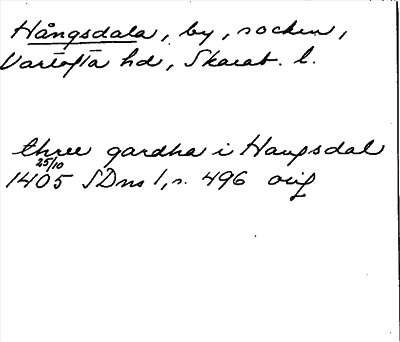 Hångsdala, by, socken,
Vartofta hd, Skarab. l.
three gardha i Hangsdal
25/10
1405 SDns 1, s. 496 orig